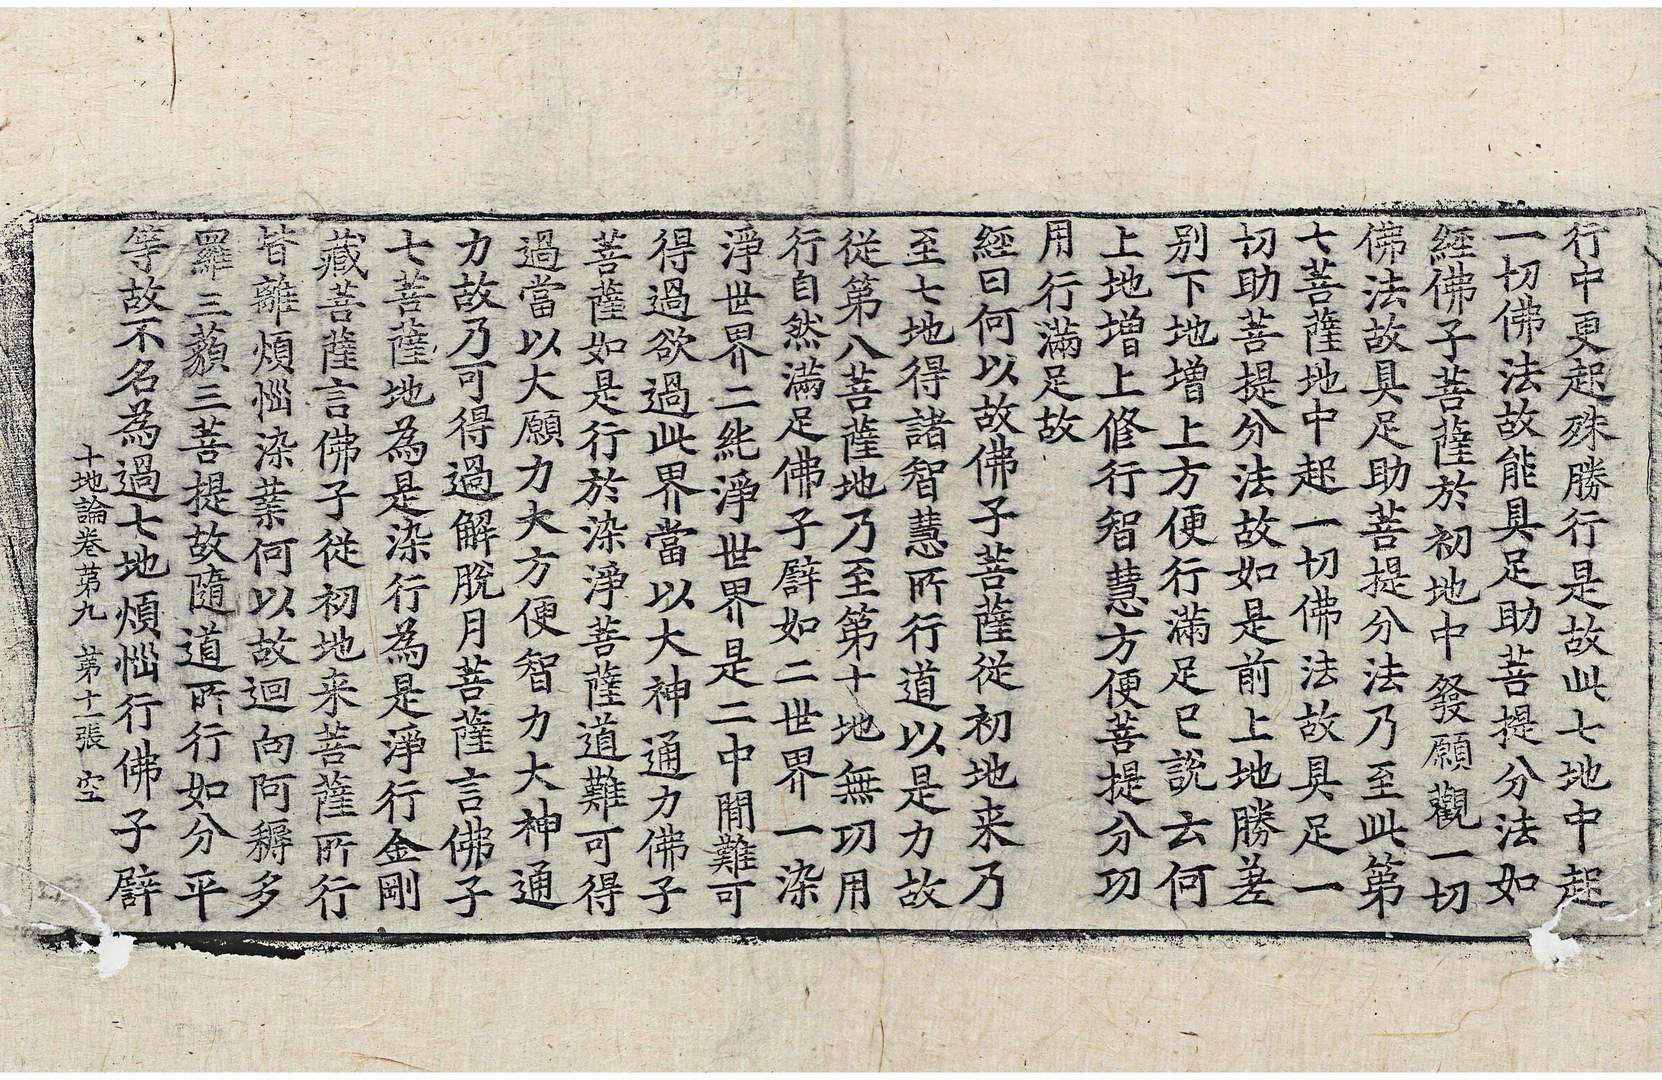 行中更起殊勝行是故此七地中起
一切佛法故能具足助菩提分法如
經佛子菩薩於初地中發願觀一切
佛法故具足助菩提分法乃至此第
七菩薩地中起一切佛法故具足一
切助菩提分法故如是前上地勝差
别下地増上方便行滿足已說云何
上地増上修行智慧方便菩提分功
用行滿足故
經曰何以故佛子菩薩從初地来乃
至七地得諸智慧所行道以是力故
從第八菩薩地乃至第十地無功用
行自然滿足佛子譬如二世界一染
淨世界二純淨世界是二中間難可
得過欲過此界當以大神通力佛子
菩薩如是行於染淨菩薩道難可得
過當以大願力大方便智力大神通
力故乃可得過解脫月菩薩言佛子
七菩薩地為是染行為是淨行金剛
藏菩薩言佛子從初地来菩薩所行
皆離煩惱染業何以故迴向阿耨多
羅三藐三菩提故隨道所行如分平
等故不名為過七地煩惱行佛子譬
十地論卷第九　第十一張　空